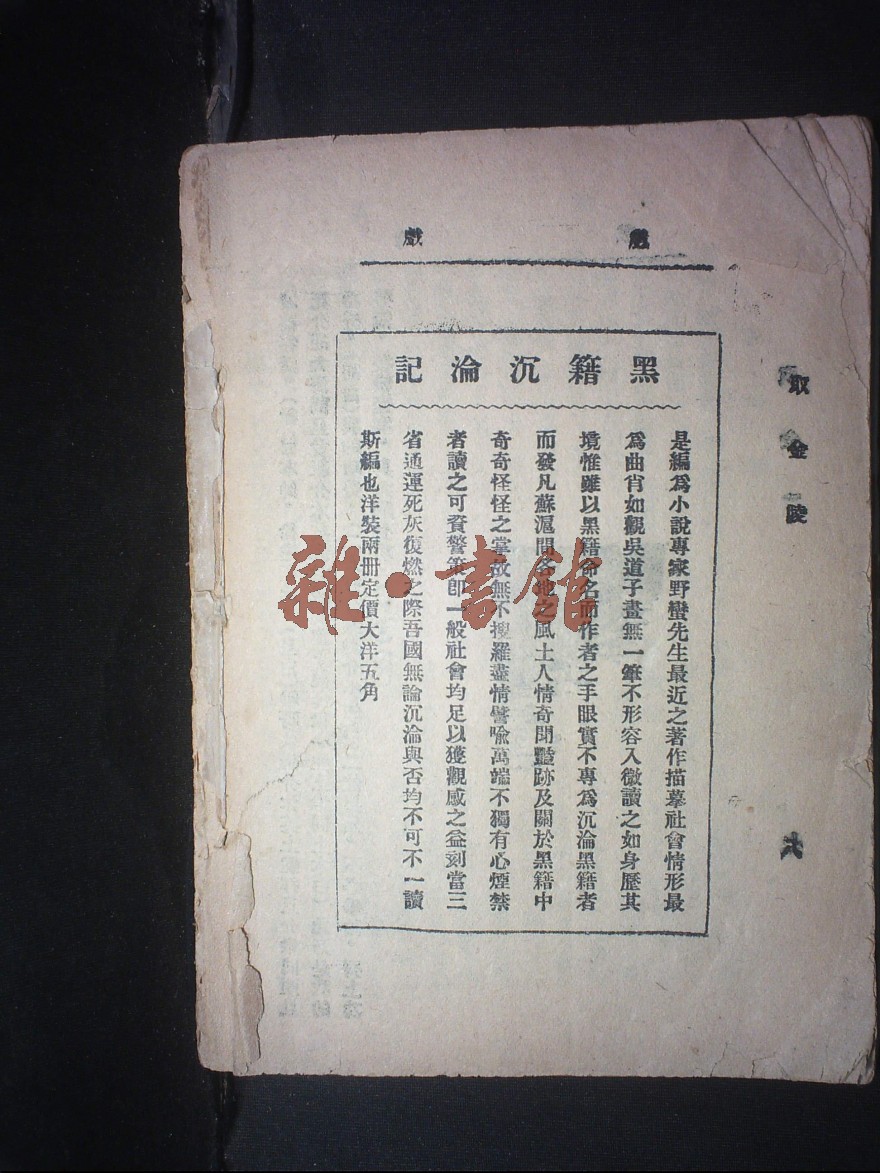 戲
戲
取金陵
六
黑籍沉淪記
是編爲小說專家野蠻先生最近之著作描摹社會情形最
爲曲肖如觀吳道子畫無一筆不形容入微讀之如身歷其
境惟雖以黑籍命名而作者之手眼實不專爲沉淪黑籍者
而發凡蘇滬間各地之風土人情奇聞豔跡及關於黑籍中
奇奇怪怪之掌故無不搜羅盡情譬喻萬端不獨有心煙禁
者讀之可資警策即一般社會均足以獲觀感之益刻當三
省通運死灰復燃之際吾國無論沉淪與否均不可不一讀
斯編也洋裝兩冊定價大洋五角
雜·書館